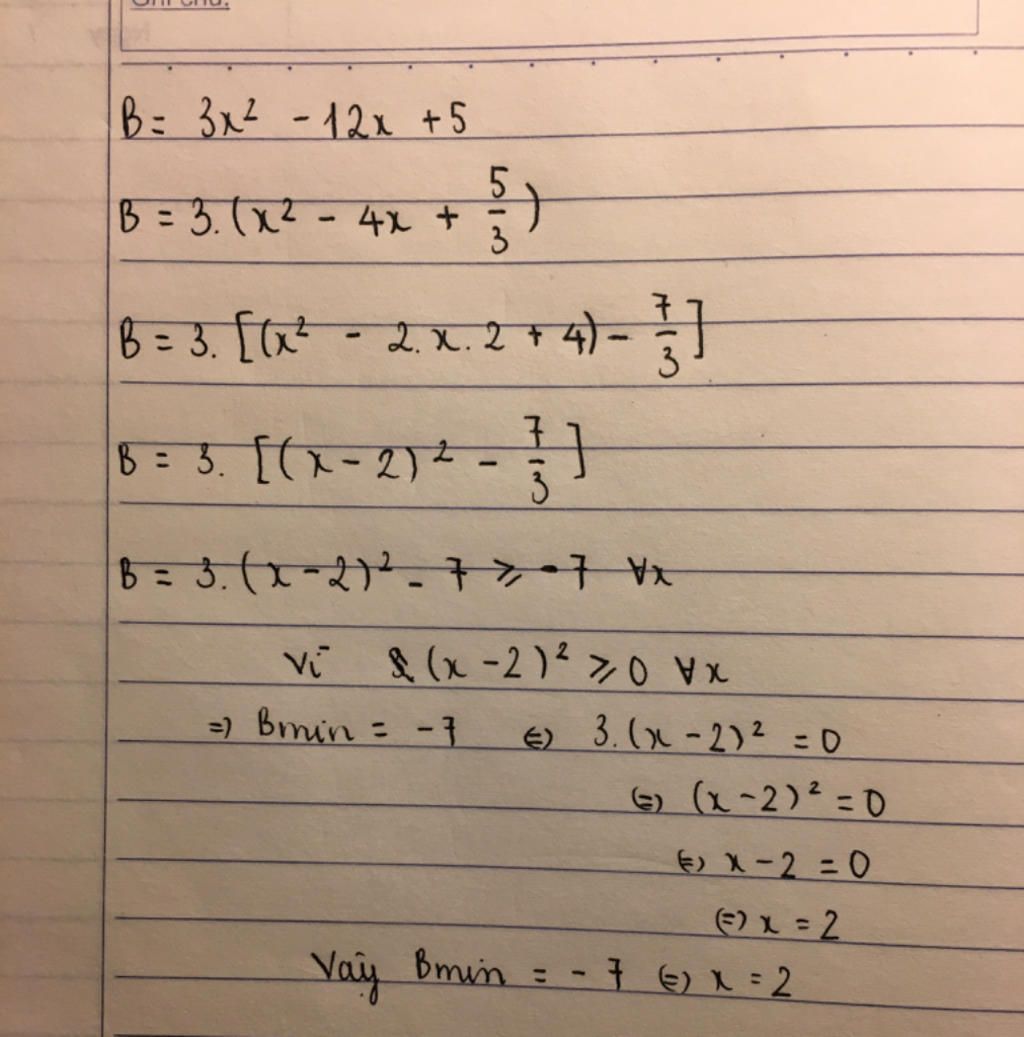 Ghi chú:
B = 3x² - 12x + 5
B = 3.(x² - 4x + 5/3)
B = 3.[(x² - 2.x.2 + 4) - 7/3]
B = 3.[(x-2)² - 7/3]
B = 3.(x-2)² - 7 ≥ -7 ∀x
Vì (x-2)² ≥ 0 ∀x
=) Bmin = -7 (=) 3.(x-2)² = 0
(=) (x-2)² = 0
(=) x-2 = 0
(=) x = 2
Vậy Bmin = -7 (=) x = 2